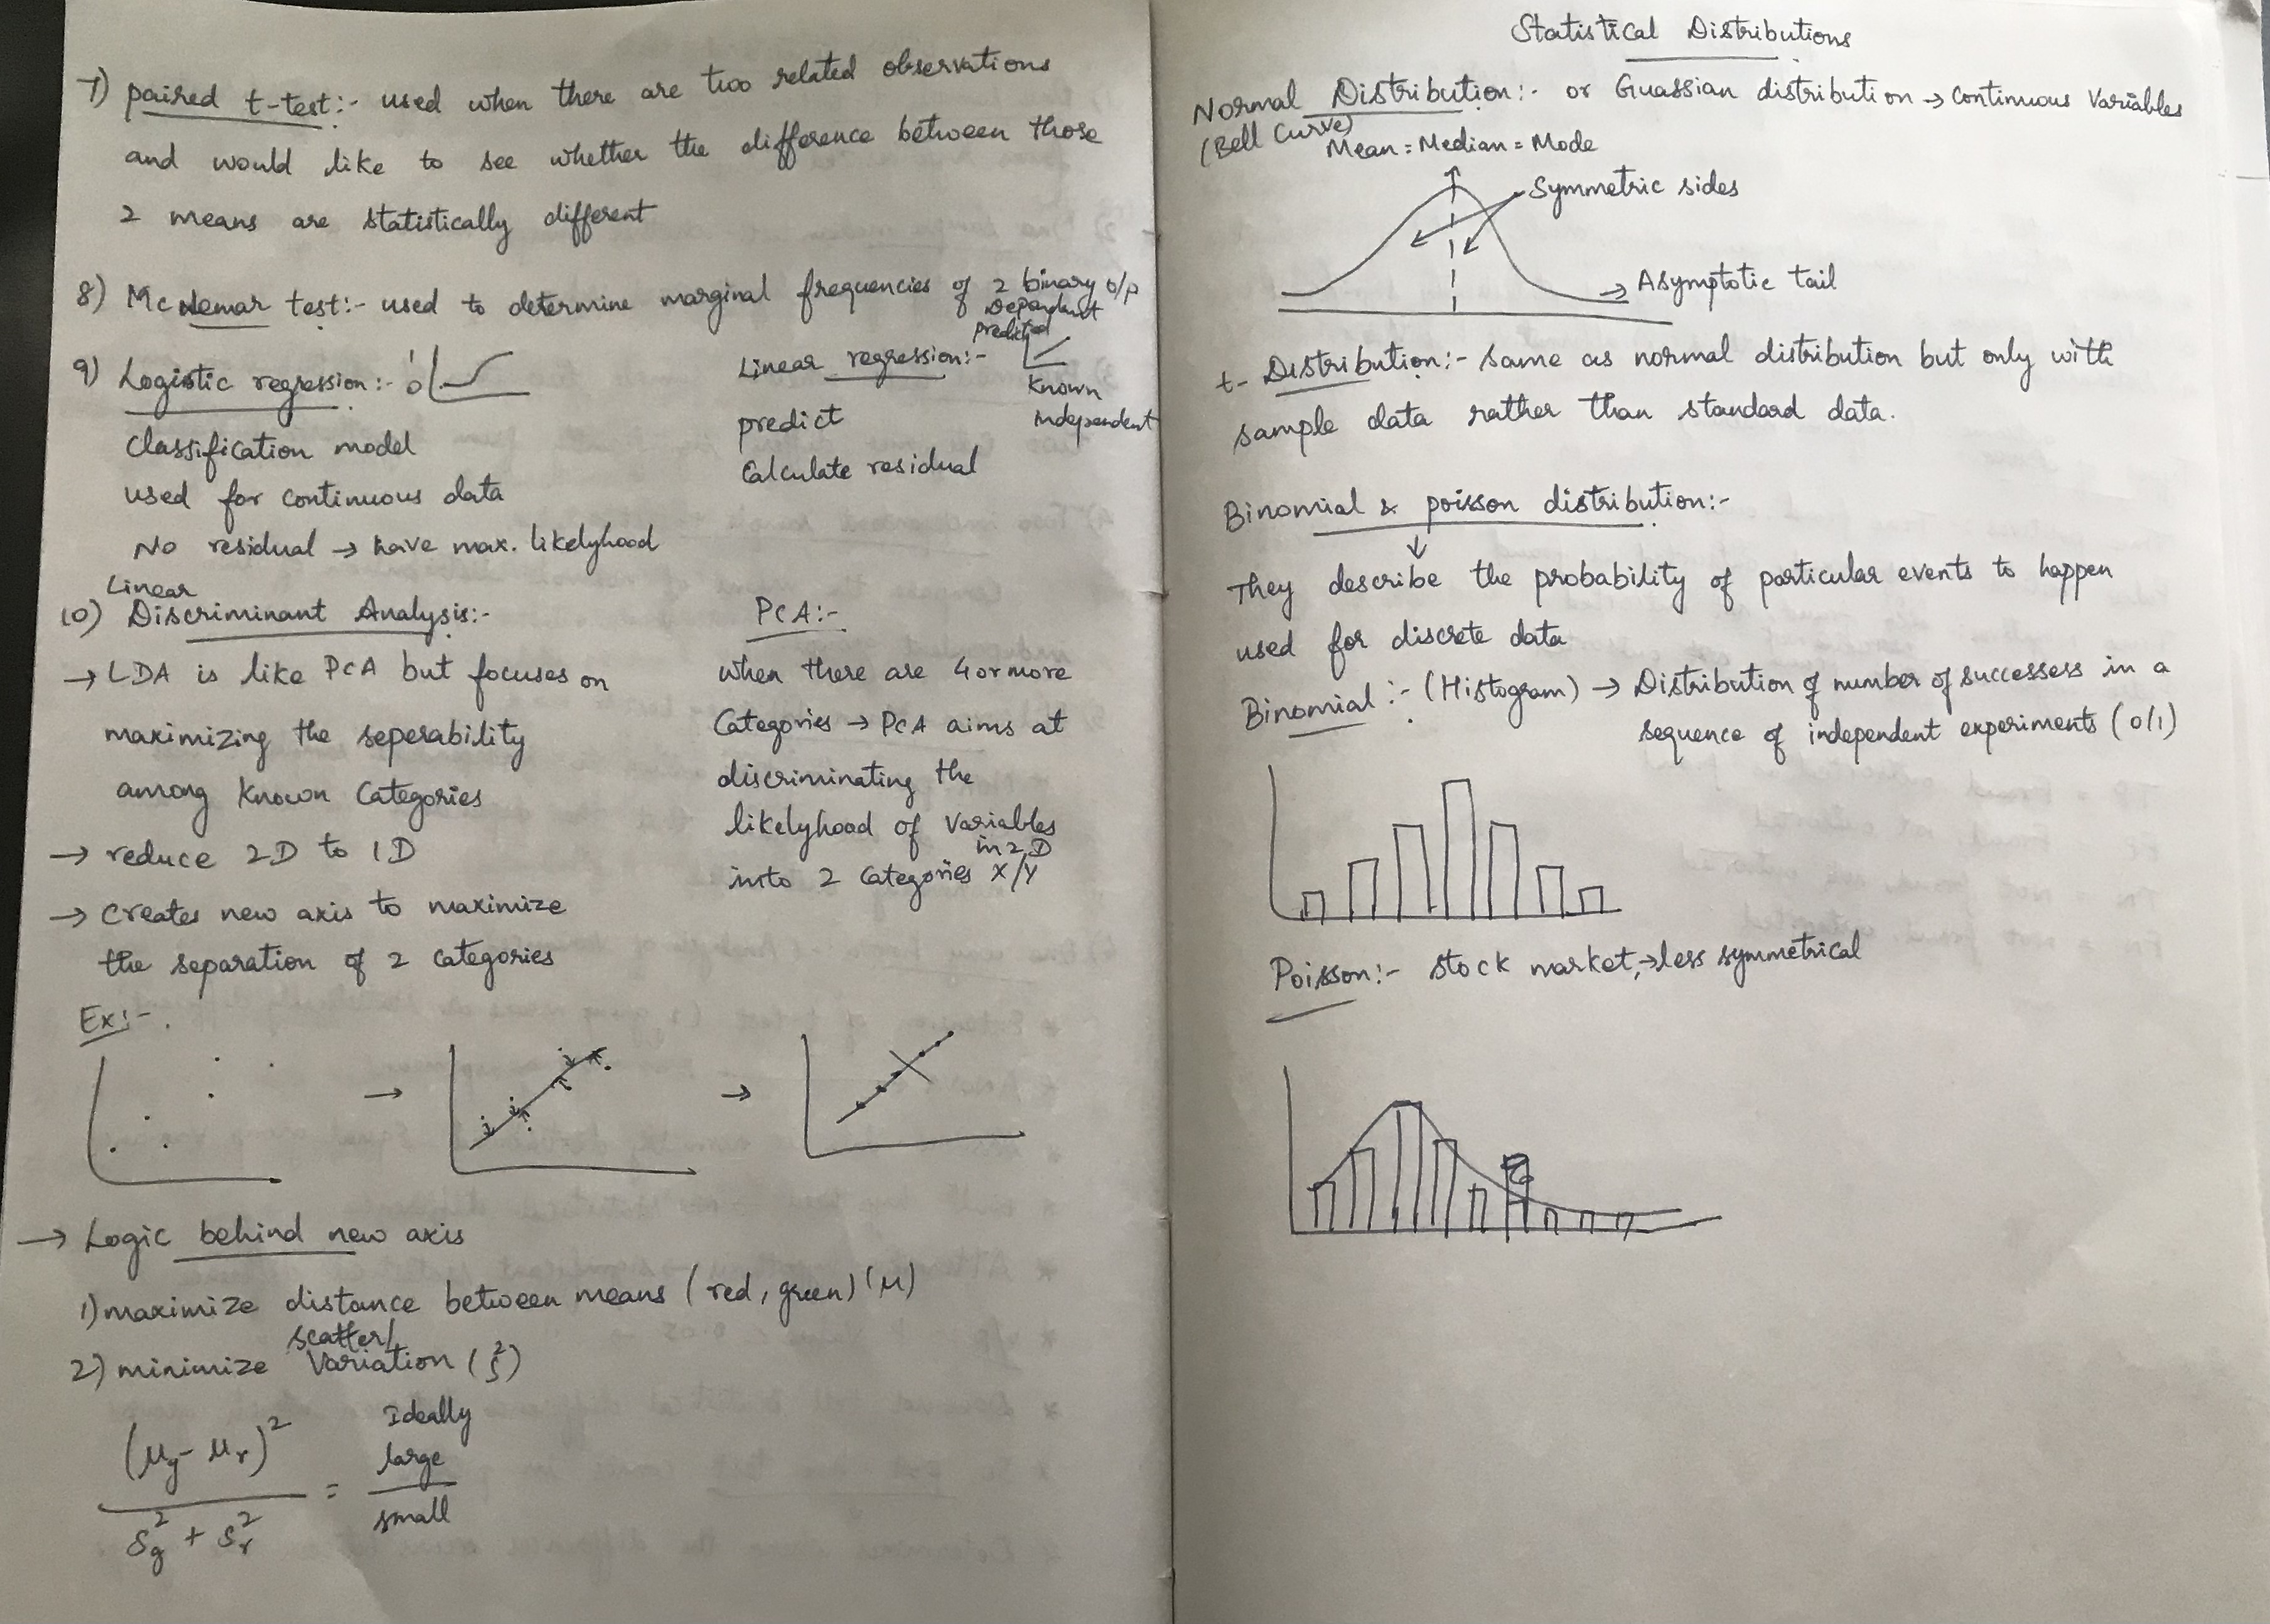 7) paired t-test:- used when there are two related observations
and would like to see whether the difference between those
2 means are statistically different
8) Mc Nemar test:- used to determine marginal frequencies of 2 binary o/p
9) Logistic regression:-
1
0
Classification model
used for continuous data
No residual → have max. likelyhood
Linear regression:-
Dependent
predicted
Known
Independent
predict
Calculate residual
Linear
10) Discriminant Analysis:-
→ LDA is like PCA but focuses on
maximizing the seperability
among Known Categories
→ reduce 2D to 1D
→ Creates new axis to maximize
the separation of 2 categories
PCA:-
when there are 4 or more
Categories → PCA aims at
discriminating the
likelyhood of Variables
in 2D
into 2 Categories X/Y
Ex:-
→ →
→ Logic behind new axis
1) maximize distance between means (red, green) (μ)
scatter/
2) minimize Variation (s²)
(μg - μr)²
Sg² + Sr²
=
Ideally
large
small
Statistical Distributions
Normal Distribution:- or Guassian distribution → Continuous Variables
(Bell Curve)
Mean = Median = Mode
Symmetric sides
Asymptotic tail
t- Distribution:- same as normal distribution but only with
sample data rather than standard data.
Binomial & poisson distribution:-
They describe the probability of particular events to happen
used for discrete data
Binomial:- (Histogram) → Distribution of number of successess in a
sequence of independent experiments (0/1)
Poisson:- stock market, → less symmetrical